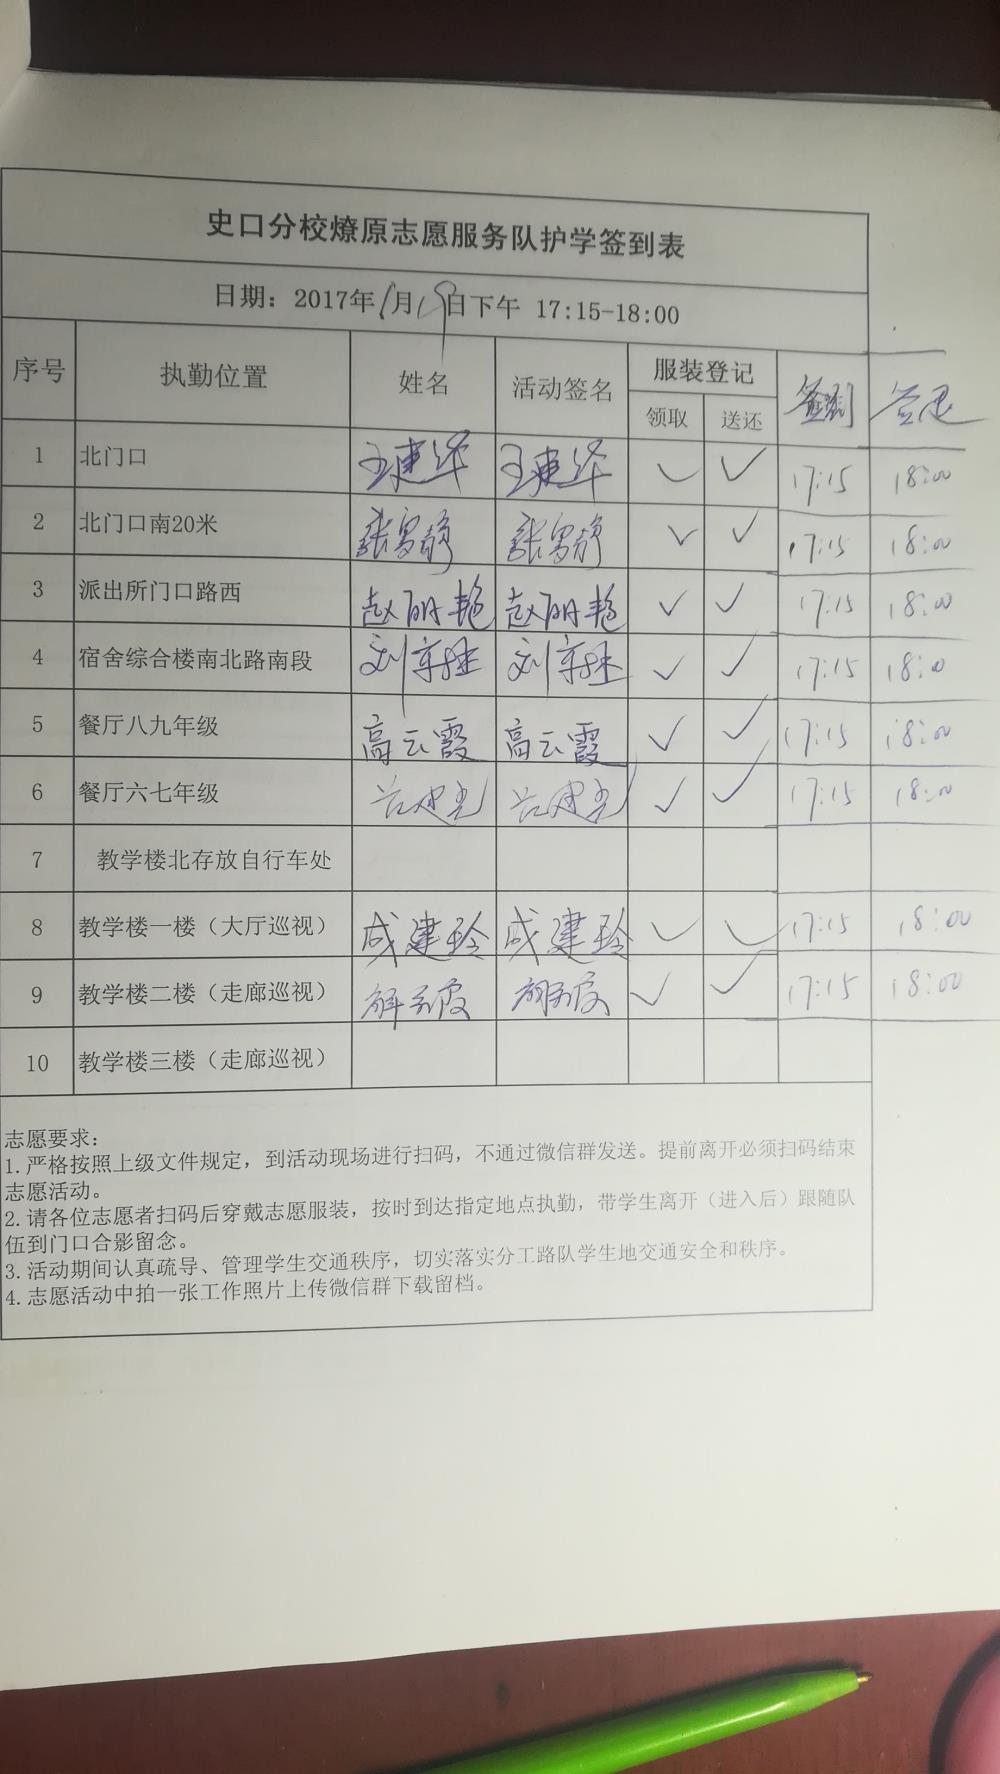 史口分校燎原志愿服务队护学签到表
日期：2017年1月19日下午 17:15-18:00
序号 执勤位置 姓名 活动签名 服装登记 签到 签退
领取 送还
1 北门口 王建华 王建华 ✓ ✓ 17:15 18:00
2 北门口南20米 ✓ ✓ 17:15 18:00
3 派出所门口路西 赵丽艳 赵丽艳 ✓ ✓ 17:15 18:00
4 宿舍综合楼南北路南段 ✓ ✓ 17:15 18:00
5 餐厅八九年级 高云霞 高云霞 ✓ ✓ 17:15 18:00
6 餐厅六七年级 ✓ ✓ 17:15 18:00
7 教学楼北存放自行车处
8 教学楼一楼（大厅巡视） 成建玲 成建玲 ✓ ✓ 17:15 18:00
9 教学楼二楼（走廊巡视） ✓ ✓ 17:15 18:00
10 教学楼三楼（走廊巡视）
志愿要求：
1.严格按照上级文件规定，到活动现场进行扫码，不通过微信群发送。提前离开必须扫码结束
志愿活动。
2.请各位志愿者扫码后穿戴志愿服装，按时到达指定地点执勤，带学生离开（进入后）跟随队
伍到门口合影留念。
3.活动期间认真疏导、管理学生交通秩序，切实落实分工路队学生地交通安全和秩序。
4.志愿活动中拍一张工作照片上传微信群下载留档。